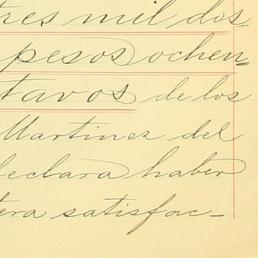 tres mil dos
pesos ochen=
tavos de los
Martinez del
declara haber
tera satisfac-